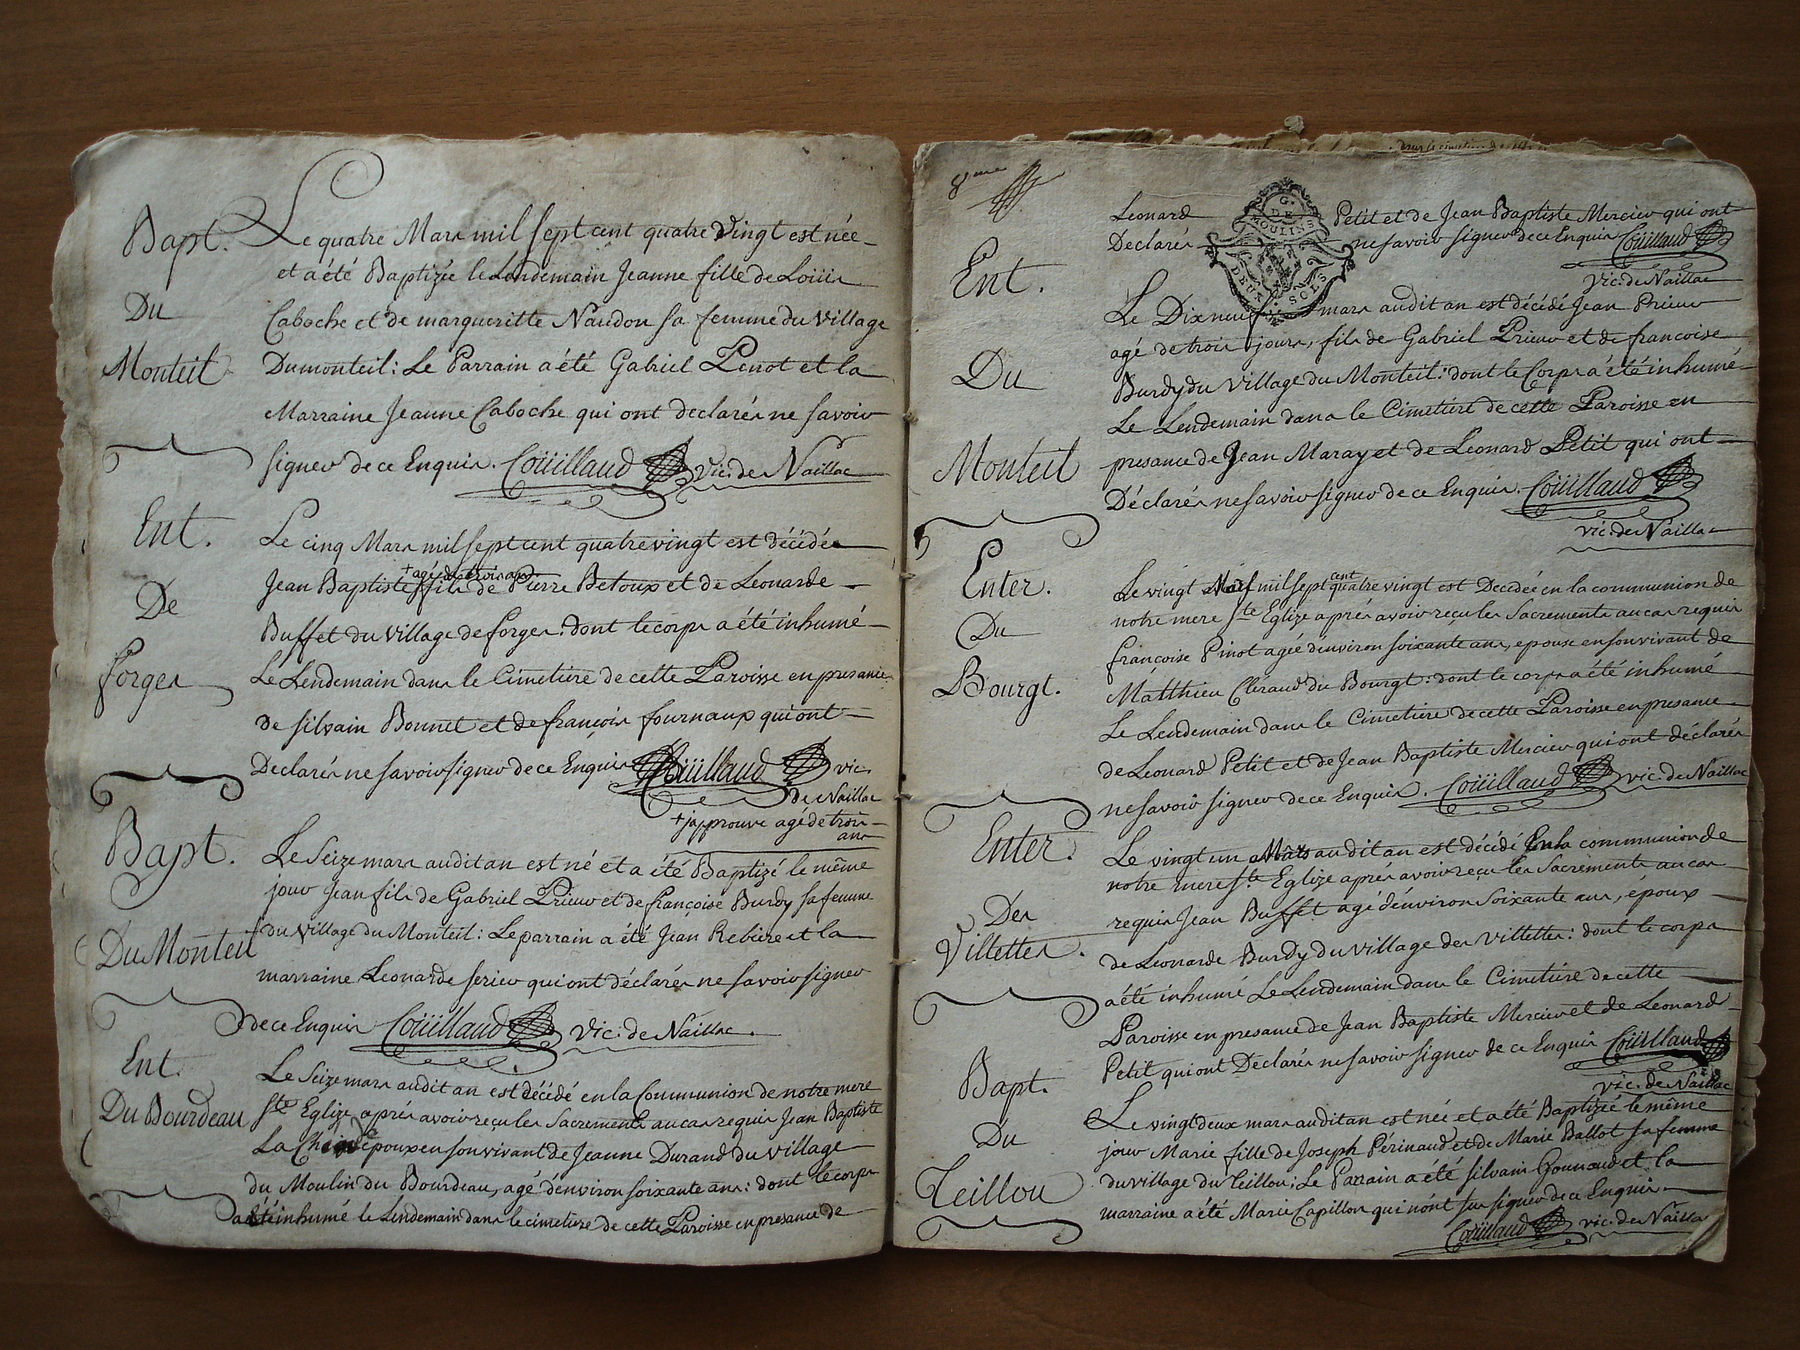 Bapt.
Du
Monteil
Le quatre Mars mil sept cent quatre vingt est née
et a été Baptizée le Lendemain Jeanne fille de Loüis
Caboche et de margueritte Naudon sa femme du village
Dumonteil: Le Parrain a été Gabriel Penot et la
Marraine Jeanne Caboche qui ont declarés ne savoir
signer de ce Enquis. Coüillaud vic: de Naillac
Ent.
De
forges
Le cinq Mars mil sept cent quatre vingt est décédée
+ agé de trois ans
Jean Baptiste fils de Pierre Betoux et de Leonarde
Buffet du village de forges: dont le corps a été inhumé
Le Lendemain dans le Cimetiere de cette Paroisse en presance
de silvain Bonnet et de françois fournaux qui ont
Declarés ne savoir signer de ce Enquis Coüillaud vic.
de Naillac
+ j'approuve agé de trois
ans
Bapt.
Du Monteil
Le Seize mars audit an est né et a été Baptizé le même
jour Jean fils de Gabriel Prieur et de françoise Burdy sa femme
du village du Monteil: Le parrain a été Jean Rebiere et la
marraine Leonarde serieu qui ont déclarés ne savoir signer
de ce Enquis Coüillaud vic: de Naillac.
Ent.
Du Bourdeau
Le Seize mars audit an est décédé en la Communion de notre mere
ste Eglize après avoir reçu les Sacrements au cas requis Jean Baptiste
époux en son vivant de Jeanne Durand du village
du Moulin du Bourdeau, agé d'environ soixante ans: dont le corps
a été inhumé le Lendemain dans le cimetiere de cette Paroisse en presance de
8me
Leonard Petit et de Jean Baptiste Mercier qui ont
Declarés ne savoir signer de ce Enquis Coüillaud
vic: de Naillac
G. DE
MOULINS
DEUX SOLS
Ent.
Du
Monteil
Le Dix neuf mars audit an est décédé Jean Prieur
agé de trois jours, fils de Gabriel Prieur et de francoise
Burdy du village du Monteil: dont le Corps a été inhumé
Le Lendemain dans le Cimetiere de cette Paroisse en
presance de Jean Maray et de Leonard Petit qui ont
Déclarés ne savoir signer de ce Enquis. Coüillaud
vic: de Naillac
Enter.
Du
Bourgt.
cent
Le vingt Mars mil sept quatre vingt est Decedée en la communion de
notre mere ste Eglize après avoir reçu les Sacrements au cas requis
françoise Pinot agée d'environ soixante ans, epouse en son vivant de
Matthieu Cléraud du Bourgt: dont le corps a été inhumé
Le Lendemain dans le Cimetiere de cette Paroisse en presance
de Leonard Petit et de Jean Baptiste Mercier qui ont déclarés
ne savoir signer de ce Enquis. Coüillaud vic: de Naillac
Enter.
Des
Villettes.
Le vingt un Mars audit an est décédé En la communion de
notre mere ste Eglize après avoir reçu les Sacrements au cas
requis Jean Buffet agé d'environ Soixante ans, époux
de Leonarde Burdy du village des Villettes: dont le corps
a été inhumé Le Lendemain dans le Cimetiere de cette
Paroisse en presance de Jean Baptiste Mercier et de Leonard
Petit qui ont Declarés ne savoir signer de ce Enquis Coüillaud
vic: de Naillac
Bapt.
Du
Teillou
Le vingt deux mars audit an est née et a été Baptizée le même
jour Marie fille de Joseph Périnaud et de Marie Ballot sa femme
du village du Teillou: Le Parrain a été silvain et la
marraine a été Marie Capillon qui n'ont su signer de ce Enquis
Coüillaud vic: de Naillac